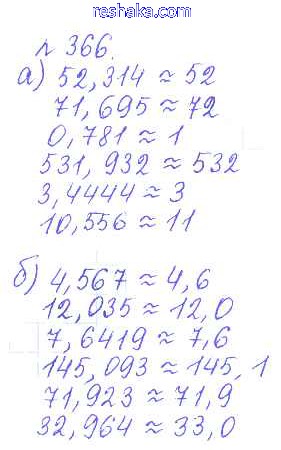 www.reshaka.com
№ 366.
а) 52,314 ≈ 52
71,695 ≈ 72
0,781 ≈ 1
531,932 ≈ 532
3,4444 ≈ 3
10,556 ≈ 11
б) 4,567 ≈ 4,6
12,035 ≈ 12,0
7,6419 ≈ 7,6
145,093 ≈ 145,1
71,923 ≈ 71,9
32,964 ≈ 33,0